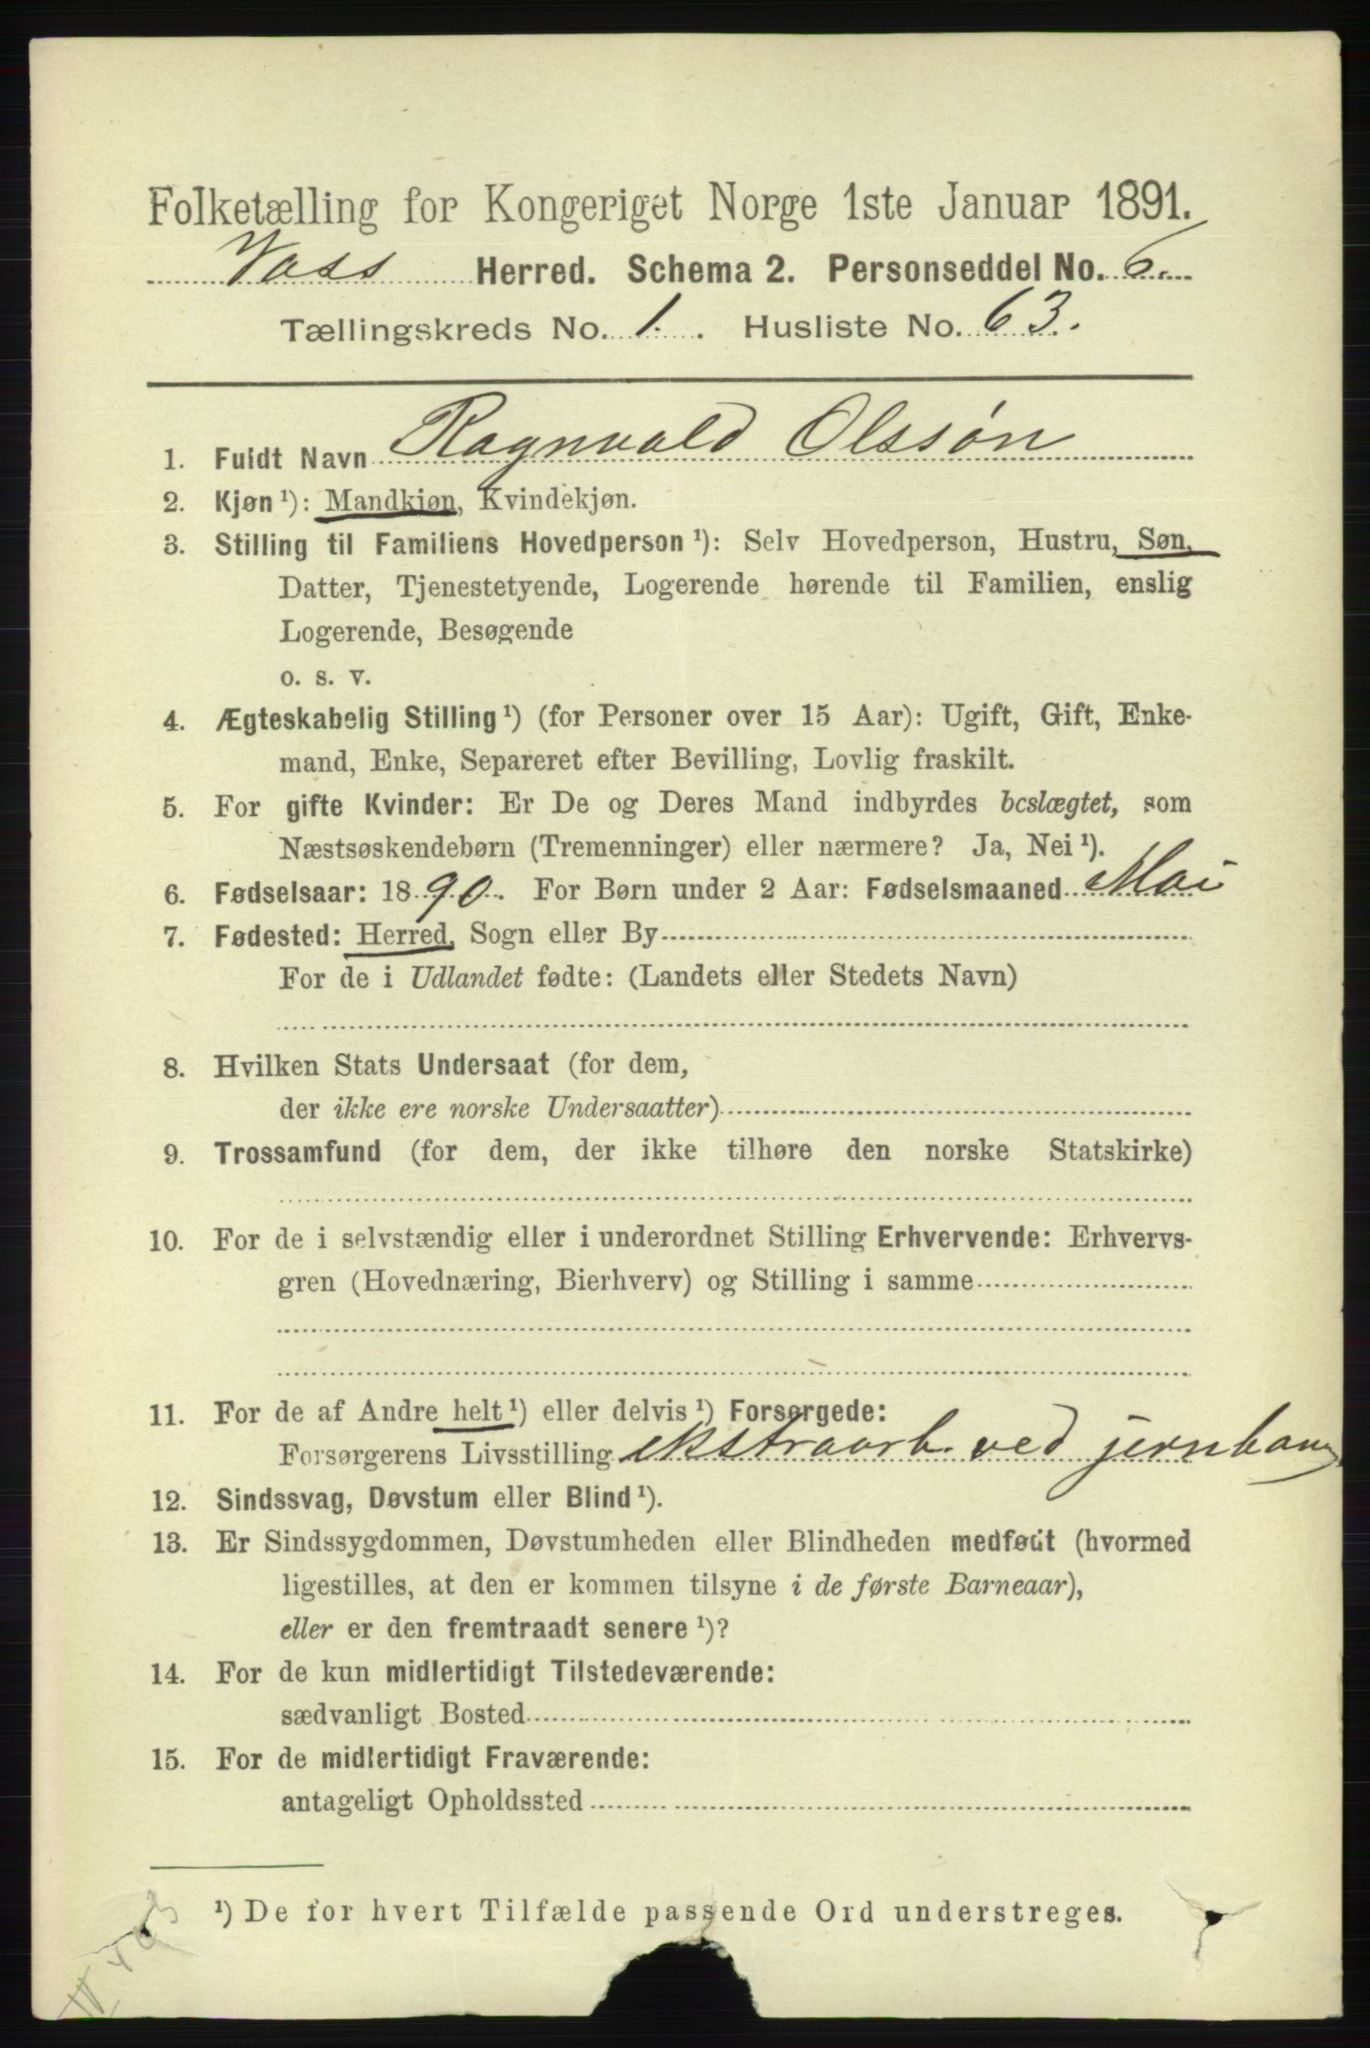 Folketælling for Kongeriget Norge 1ste Januar 1891.
Voss Herred. Schema 2. Personseddel No. 6.
Tællingskreds No. 1. Husliste No. 63.
1. Fuldt Navn Ragnvald Olssøn
2. Kjøn ¹): Mandkjøn, Kvindekjøn.
3. Stilling til Familiens Hovedperson ¹): Selv Hovedperson, Hustru, Søn,
Datter, Tjenestetyende, Logerende hørende til Familien, enslig
Logerende, Besøgende
o. s. v.
4. Ægteskabelig Stilling ¹) (for Personer over 15 Aar): Ugift, Gift, Enke-
mand, Enke, Separeret efter Bevilling, Lovlig fraskilt.
5. For gifte Kvinder: Er De og Deres Mand indbyrdes beslægtet, som
Næstsøskendebørn (Tremenninger) eller nærmere? Ja, Nei ¹).
6. Fødselsaar: 1890. For Børn under 2 Aar: Fødselsmaaned Mai
7. Fødested: Herred, Sogn eller By
For de i Udlandet fødte: (Landets eller Stedets Navn)
8. Hvilken Stats Undersaat (for dem,
der ikke ere norske Undersaatter)
9. Trossamfund (for dem, der ikke tilhøre den norske Statskirke)
10. For de i selvstændig eller i underordnet Stilling Erhvervende: Erhvervs-
gren (Hovednæring, Bierhverv) og Stilling i samme
11. For de af Andre helt ¹) eller delvis ¹) Forsørgede:
Forsørgerens Livsstilling ekstraarb. ved jernbane
12. Sindssvag, Døvstum eller Blind ¹).
13. Er Sindssygdommen, Døvstumheden eller Blindheden medfødt (hvormed
ligestilles, at den er kommen tilsyne i de første Barneaar),
eller er den fremtraadt senere ¹)?
14. For de kun midlertidigt Tilstedeværende:
sædvanligt Bosted
15. For de midlertidigt Fraværende:
antageligt Opholdssted
¹) De for hvert Tilfælde passende Ord understreges.